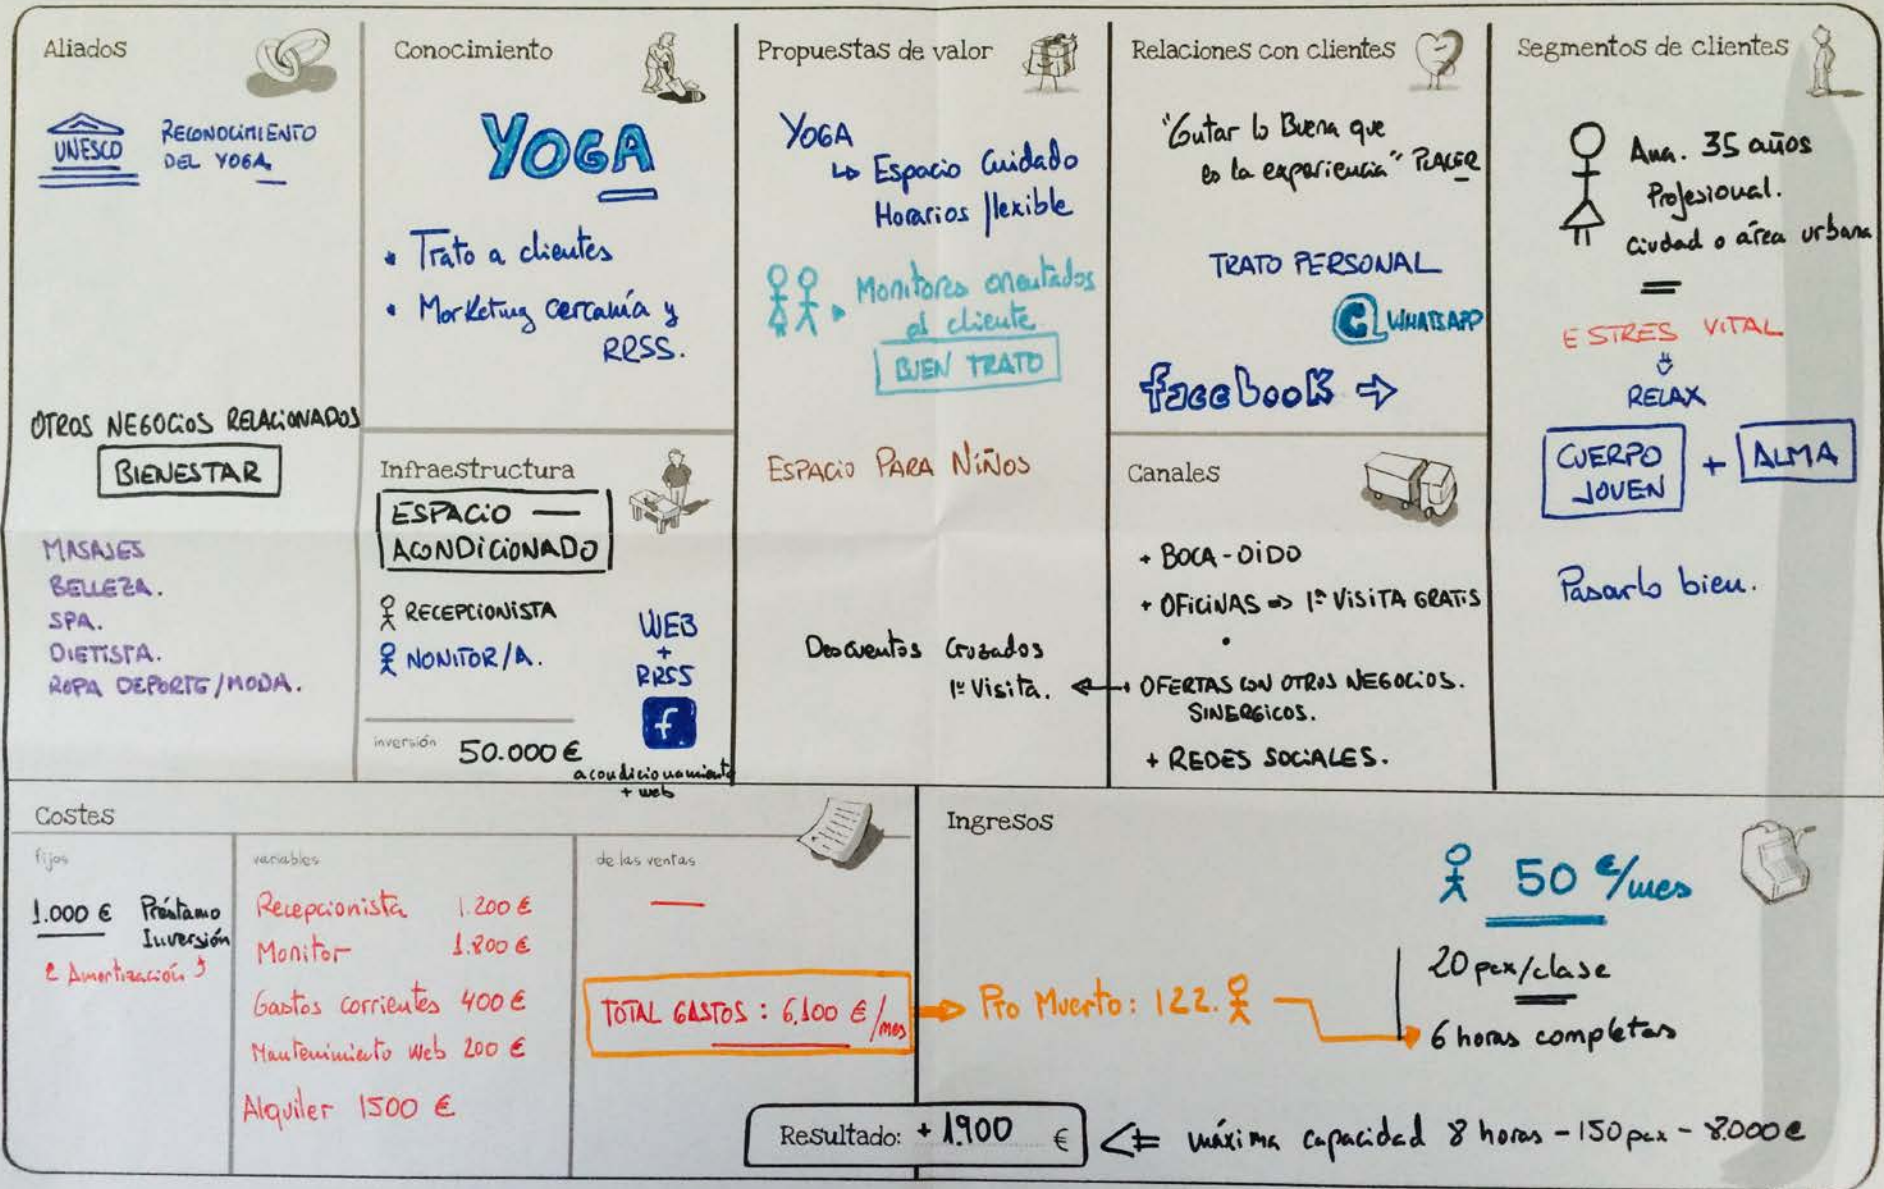 Aliados
UNESCO
RECONOCIMIENTO
DEL YOGA
OTROS NEGOCIOS RELACIONADOS
BIENESTAR
MASAJES
BELLEZA.
SPA.
DIETISTA.
ROPA DEPORTE/MODA.
Conocimiento
YOGA
• Trato a clientes
• Marketing cercanía y
RRSS.
Infraestructura
ESPACIO —
ACONDICIONADO
RECEPCIONISTA
NONITOR/A.
WEB
+
RRSS
f
inversión 50.000 €
acondicionamiento
+ web
Propuestas de valor
YOGA
↳ Espacio Cuidado
Horarios flexible
Monitores orientados
al cliente
BUEN TRATO
ESPACIO PARA NIÑOS
Descuentos Cruzados
1ª Visita.
Relaciones con clientes
"Contar lo Buena que
es la experiencia" PLACER
TRATO PERSONAL
WHATSAPP
facebook ⇨
Canales
+ BOCA-OIDO
+ OFICINAS => 1ª VISITA GRATIS
•
+ OFERTAS CON OTROS NEGOCIOS.
SINERGICOS.
+ REDES SOCIALES.
Segmentos de clientes
Ana. 35 años
Profesional.
Ciudad o área urbana
=
ESTRES VITAL
RELAX
CUERPO JOVEN + ALMA
Pasarlo bien.
Costes
fijos
1.000 € Préstamo
Inversión
Amortización
variables
Recepcionista 1.200 €
Monitor 1.800 €
Gastos corrientes 400 €
Mantenimiento Web 200 €
Alquiler 1500 €
de las ventas
—
TOTAL GASTOS: 6.100 €/mes
Ingresos
50 €/mes
Pto Muerto: 122.
20 pax/clase
6 horas completas
Resultado: + 1.900 €
máxima capacidad 8 horas - 150 pax - 8.000 €